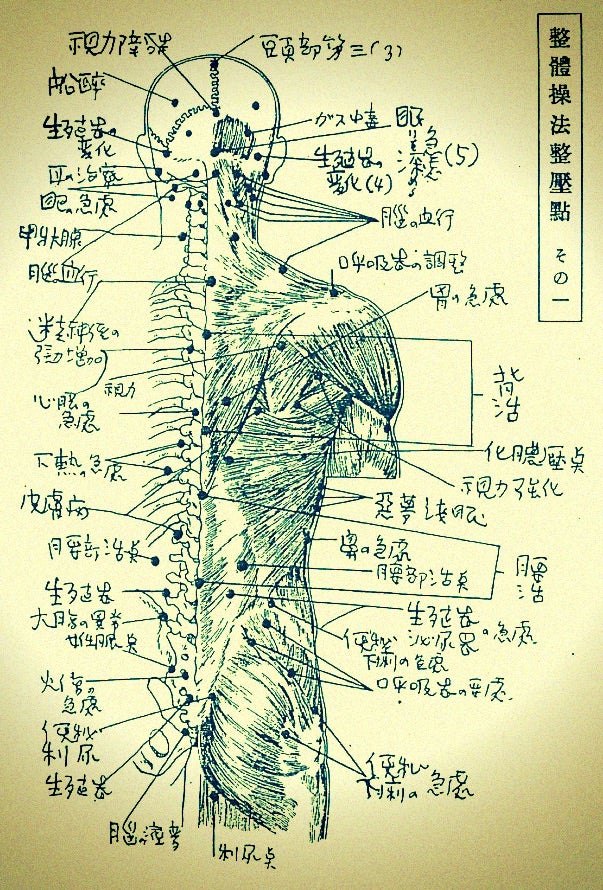 整體操法整壓點 その一
視力障害
頭部第三(3)
船酔
生殖器の
変化
ガス中毒
眼
急
生殖器の
変化(4)
耳の治療
眼の急處
甲状腺
脳の血行
脳血行
呼吸器の調整
胃の急處
迷走神経の
緊張増加
視力
心臓の
急處
背
活
化膿壓点
下熱の急處
視力強化
皮膚病
悪夢浅眠
胃の急處
腰部活点
腰部活点
腰
活
生殖器
大腸の異常
生殖器
泌尿器の急處
便秘
下痢の急處
呼吸器の要處
火傷の
急處
便秘
利尿
生殖器
便秘
下痢の急處
利尿点